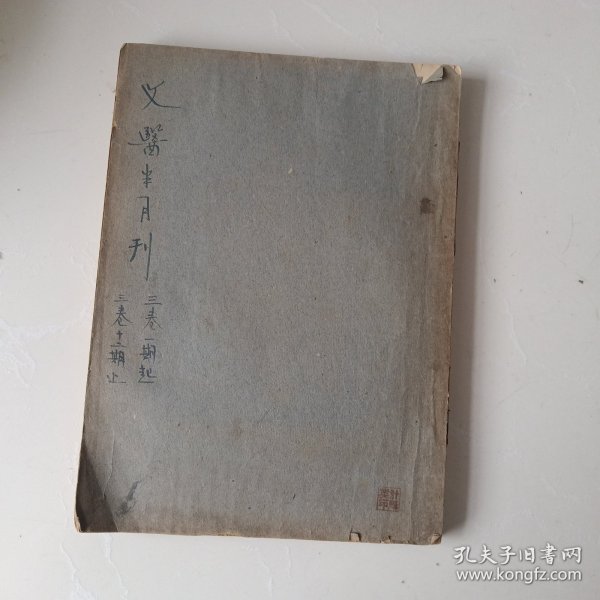 文醫半月刊
三卷一期起
三卷十二期止
孔夫子旧书网
www.kongfz.com